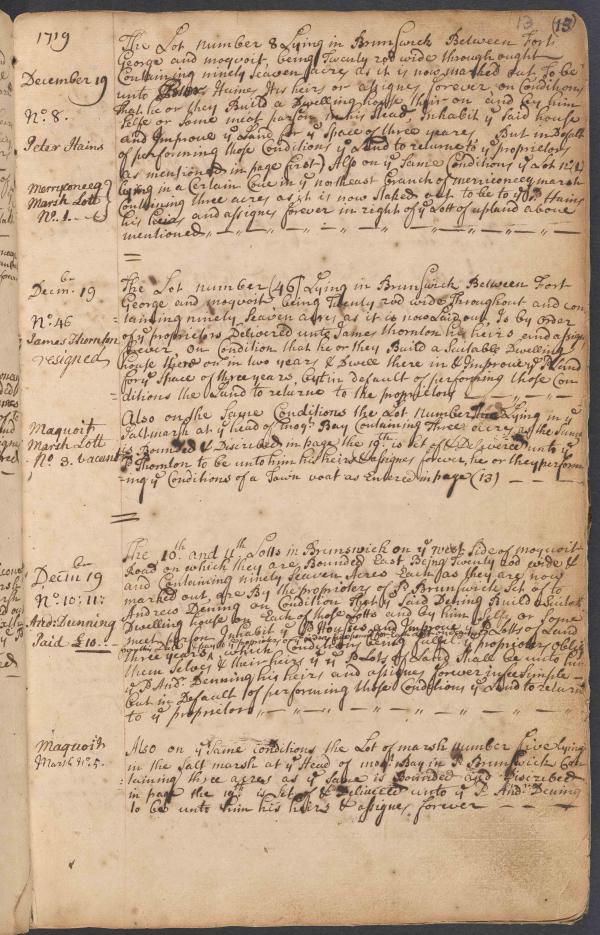 13 (13)
1719
The Lot number 8 Lying in Brunswick Between Fort
George and moqvoit, being Twenty rod wide through ought
December 19
Containing ninety seaven acres as it is now marked out To be
unto Peter Haines His heirs or assignes forever on Conditions
that he or they Build a Dwelling house their on and by him
No. 8.
selfe or Some meet parson in his Stead Inhabit yͤ said house
and Improve yͤ Land for yͤ Space of three yeares. But in Default
Peter Hains
of performing those Conditions yͤ Land to returne to yͤ proprietors
as mentioned in page first) Also on yͤ Same Conditions yͤ Lot No. 1
Merryconeeg
Lying in a Certain Cove in yͤ northeast branch of merriconeeg marsh
Marsh Lott
Containing three acres as it is now Staked out to be to yͤ Sd. Hains
No. 1.
his heirs and assignes forever in right of yͤ Lott of upland above
mentioned
Decmbr. 19
The Lot number (46) Lying in Brunswick Between Fort
George and moqvoit being Twenty rod wide Throughout and con
No. 46
taining ninety Seaven acres as it is now Laid out Is by order
of yͤ proprietors Delivered unto James thornton his heirs and assigns
James Thornton
forever On Condition that he or they Build a Suitable Dwelling
resigned
house there on in two years & Dwell there in & Improve yͤ Sd. Land
for yͤ Space of three years, but in default of performing those Con
ditions the Land to returne to the proprietors
Also on the Same Conditions the Lot Number three Lying in yͤ
Maquoit
Saltmarsh at yͤ head of moqt. Bay Containing Three acres as the Same
Marsh Lott
is Bounded & Discribed in page the 19th is Set of & Delivered unto yͤ
No. 3. vacant
Sd. Thornton to be unto him his heirs & assignes forever, he or they perform
ing yͤ Conditions of a Town voat as Entered in page (13)
The 10th. and 11th Lotts in Brunswick on yͤ west Side of moqvoit
Road on which they are Bounded East Being Twenty rod wide &
Decmbr 19
and Containing ninety Seaven Acres Each as they are now
No. 10: 11:
marked out, are By the proprieters of Sd. Brunswick Set of to
Andrew Dening on Condition That yͤ Said Dening Build a Suitable
Andr: Dunning
Dwelling house on Each of those Lotts and by him Selfe or Some
Paid £10
meet person Inhabit yͤ Sd Houses and Improve yͤ Sd Lotts of Land
three years, which Conditions being fulfilled yͤ proprietors oblige
them Selves & their heirs yt yͤ Sd Lots of Land Shall be unto him
yͤ Sd Andr. Denning his heirs and assignes forever in fee Simple
but in Default of performing those Conditions yͤ Land to return
to yͤ proprietors
Maquoit
Also on yͤ Same conditions the Lot of marsh number five lying
Marsh No. 5.
in the Salt marsh at yͤ Head of moqt. Bay in Sd. Brunswick Con
taining three acres as yͤ Same is Bounded and Discribed
in page the 19th. is Set of & Delivered unto yͤ Sd Andr. Dening
to be unto him his heirs & assignes forever